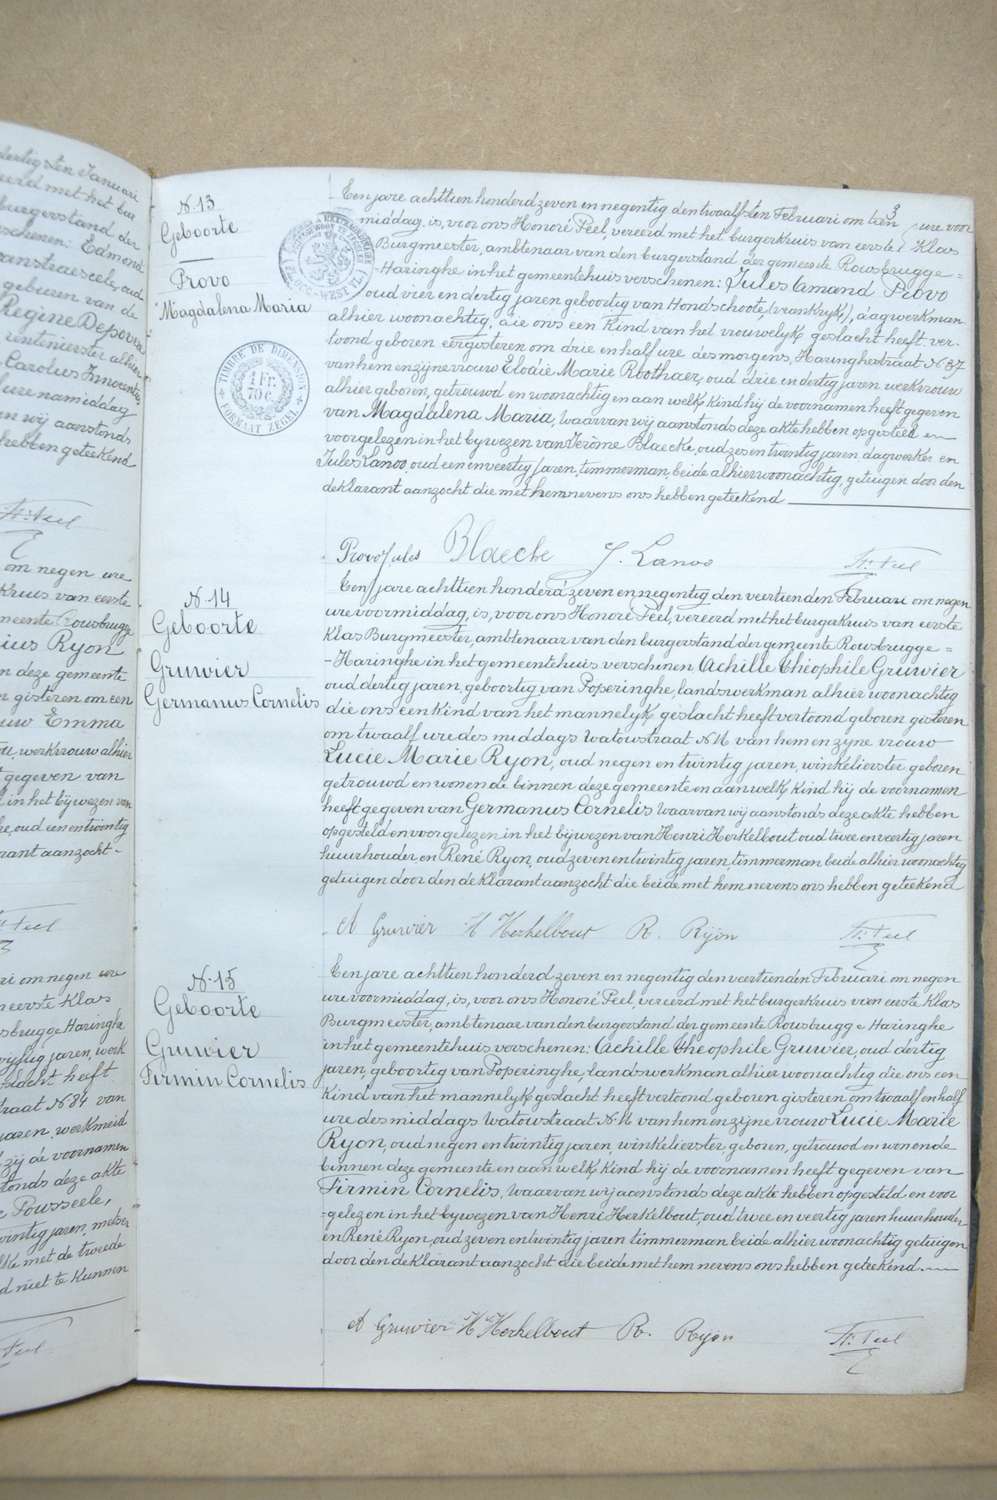 N. 13
Geboorte
Provo
Magdalena Maria
TIMBRE DE DIMENSION
1 Fr.
70 c.
FORMAAT ZEGEL
3
Een jare achttien honderd zeven en negentig den twaalfsten Februari om tien ure voor
middag, is, voor ons Honoré Peel, vereerd met het burgerkruis van eerste Klas
Burgmeester, ambtenaar van den burgerstand der gemeente Rousbrugge=
-Haringhe in het gemeentehuis verschenen: Jules Amand Provo
oud vier en dertig jaren geboortig van Hondschoote (vrankryk), dagwerkman
alhier woonachtig, die ons een kind van het vrouwelyk geslacht heeft ver-
toond geboren eergisteren om drie en half ure des morgens, Haringhestraat N 37
van hem en zijne vrouw Elodie Marie Roothaer, oud drie en dertig jaren werkvrouw
alhier geboren, getrouwd en woonachtig en aan welk kind hij de voornamen heeft gegeven
van Magdalena Maria, waarvan wij aanstonds deze akte hebben opgesteld en
voorgelezen in het bywezen van Jerôme Blaecke, oud zes en twintig jaren dagwerker en
Jules Lanoo, oud een en veertig jaren, timmerman, beide alhier woonachtig, getuigen door den
deklarant aanzocht die met hem nevens ons hebben geteekend
Provo Jules Blaecke J. Lanoo H. Peel
N. 14
Geboorte
Gruwier
Germanus Cornelis
Een jare achttien honderd zeven en negentig den veertienden Februari om negen
ure voormiddag, is, voor ons Honoré Peel, vereerd met het burgerkruis van eerste
Klas Burgmeester, ambtenaar van den burgerstand der gemeente Rousbrugge=
-Haringhe in het gemeentehuis verschenen Achille Théophile Gruwier
oud dertig jaren, geboortig van Poperinghe, landswerkman alhier woonachtig
die ons een kind van het mannelyk geslacht heeft vertoond geboren gisteren
om twaalf ure des middags Watoustraat N 11 van hem en zyne vrouw
Lucie Marie Ryon, oud negen en twintig jaren, winkelierster geboren
getrouwd en wonende binnen deze gemeente en aan welk kind hij de voornamen
heeft gegeven van Germanus Cornelis waarvan wij aanstonds deze akte hebben
opgesteld en voorgelezen in het bijwezen van Henri Herkelbout oud twee en veertig jaren
huurhouder en René Ryon, oud zeven en twintig jaren, timmerman beide alhier woonachtig
getuigen door den deklarant aanzocht die beide met hem nevens ons hebben geteekend
A Gruwier H Herkelbout R. Ryon H. Peel
N. 15
Geboorte
Gruwier
Firmin Cornelis
Een jare achttien honderd zeven en negentig den veertienden Februari om negen
ure voormiddag, is, voor ons Honoré Peel, vereerd met het burgerkruis van eerste Klas
Burgmeester, ambtenaar van den burgerstand der gemeente Rousbrugge Haringhe
in het gemeentehuis verschenen: Achille Theophile Gruwier, oud dertig
jaren, geboortig van Poperinghe, landswerkman alhier woonachtig die ons een
kind van het mannelyk geslacht heeft vertoond geboren gisteren om twaalf en half
ure des middags Watoustraat N 11 van hem en zijne vrouw Lucie Marie
Ryon, oud negen en twintig jaren, winkelierster, geboren, getrouwd en wonende
binnen deze gemeente en aan welk kind hij de voornamen heeft gegeven van
Firmin Cornelis, waarvan wij aanstonds deze akte hebben opgesteld en voor
-gelezen in het bywezen van Henri Herkelbout, oud twee en veertig jaren huurhouder
en René Ryon, oud zeven en twintig jaren timmerman beide alhier woonachtig getuigen
door den deklarant aanzocht die beide met hem nevens ons hebben geteekend.
A Gruwier H Herkelbout R. Ryon H. Peel